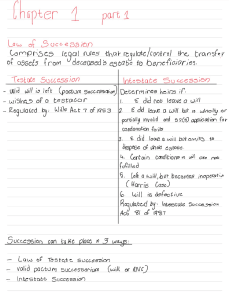 Chapter 1 part 1
Law of Succession
Comprises legal rules that regulate/control the transfer
of assets from deceased's estate to beneficiaries.
Testate Succession
- valid will is left (pactum successorium)
- wishes of a testator
- Regulated by: Wills Act 7 of 1953
Intestate Succession
Determines heirs if:
1. E did not leave a will
2. E did leave a will but is wholly or
partially invalid and
condonation fails
3. E did leave a will but omits to
dispose of whole estate
4. Certain conditions in will are not
fulfilled
5. Left a will, but becomes inoperative
(Harris Case)
6. Will is defective
Regulated by: Intestate Succession
Act 81 of 1987
Succession can take place in 3 ways:
- Law of Testate succession
- valid pactum successorium (
- Intestate Succession